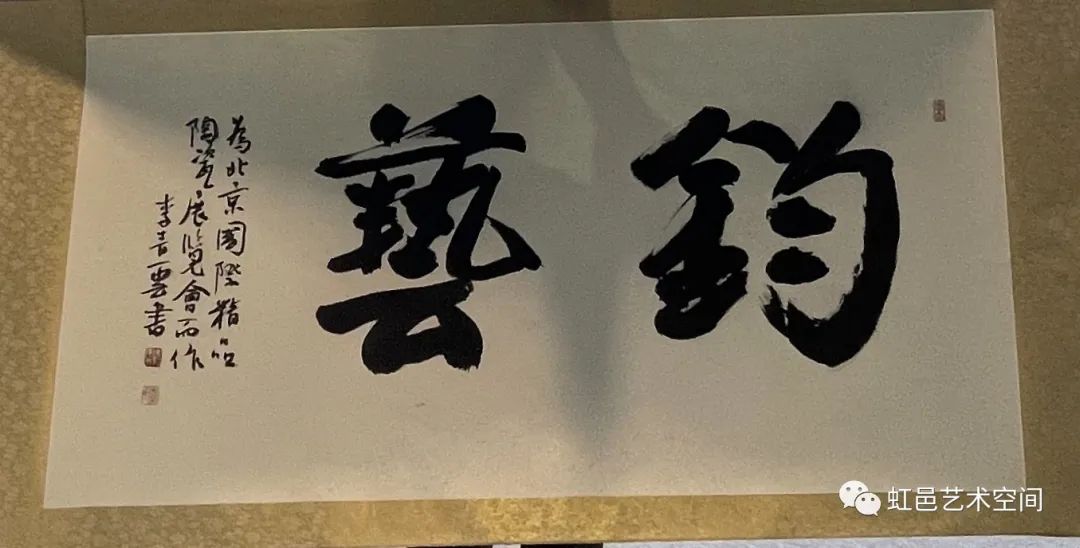 鈞藝
為北京國際精品
陶瓷展覽會而作
李青雲書
虹邑艺术空间